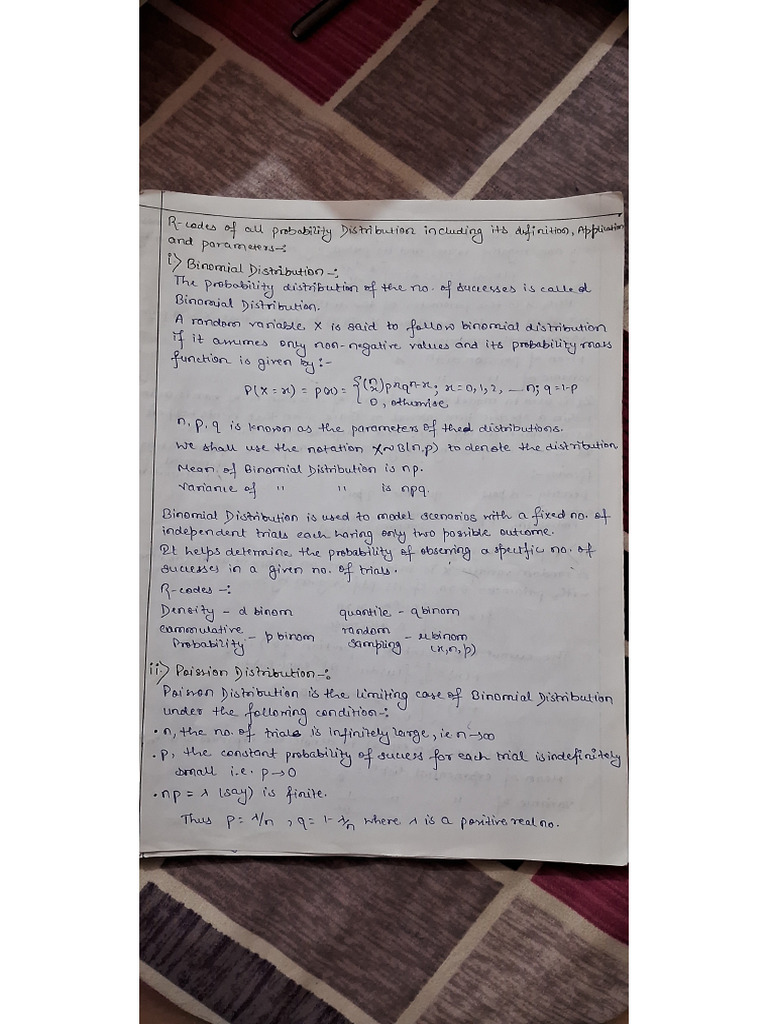 R-codes of all probability Distribution including its definition, Application
and parameters-:
i) Binomial Distribution-:
The probability distribution of the no. of successes is called
Binomial Distribution.
A random variable X is said to follow binomial distribution
if it assumes only non-negative values and its probability mass
function is given by:-
P(X=x) = p(x) = {(n x) p^x q^n-x; x=0,1,2, ---n; q=1-p
0, otherwise
n, p, q is known as the parameters of the distributions.
We shall use the notation X~B(n,p) to denote the distribution
Mean of Binomial Distribution is np.
Variance of " " is npq.
Binomial Distribution is used to model scenarios with a fixed no. of
independent trials each having only two possible outcome.
It helps determine the probability of observing a specific no. of
successes in a given no. of trials.
R-codes-:
Density - dbinom quantile - qbinom
Cammulative Probability - pbinom random sampling - rbinom (x,n,p)
ii) Poission Distribution-:
Poisson Distribution is the limiting case of Binomial Distribution
under the following condition-:
• n, the no. of trials is infinitely large, ie n→∞
• p, the constant probability of sucess for each trial is indefinitely
small i.e. p→0
• np = λ (say) is finite.
Thus p = λ/n, q = 1-λ/n where λ is a positive real no.